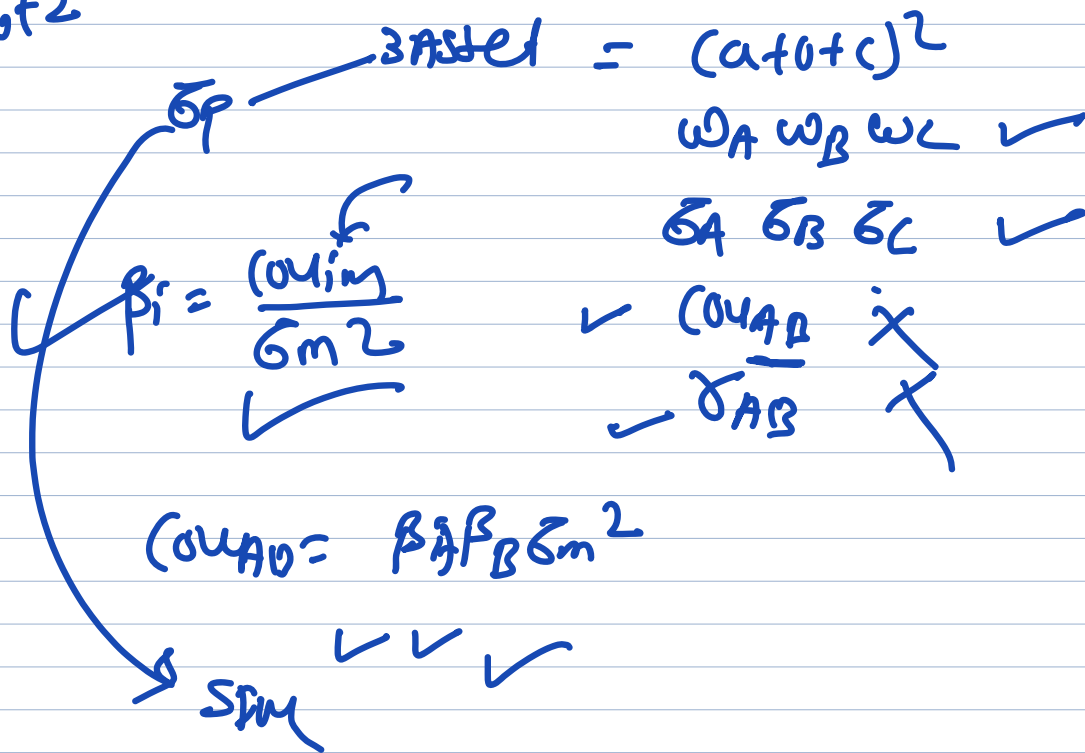 3 Asset = (a+b+c)²
σp
ω_A ω_B ω_C ✓
σ_A σ_B σ_C ✓
β_i = Cov_im / σm² ✓
✓ Cov_AB ×
✓ γ_AB ×
Cov_AB = β_A β_B σm²
✓ ✓ ✓
SIM